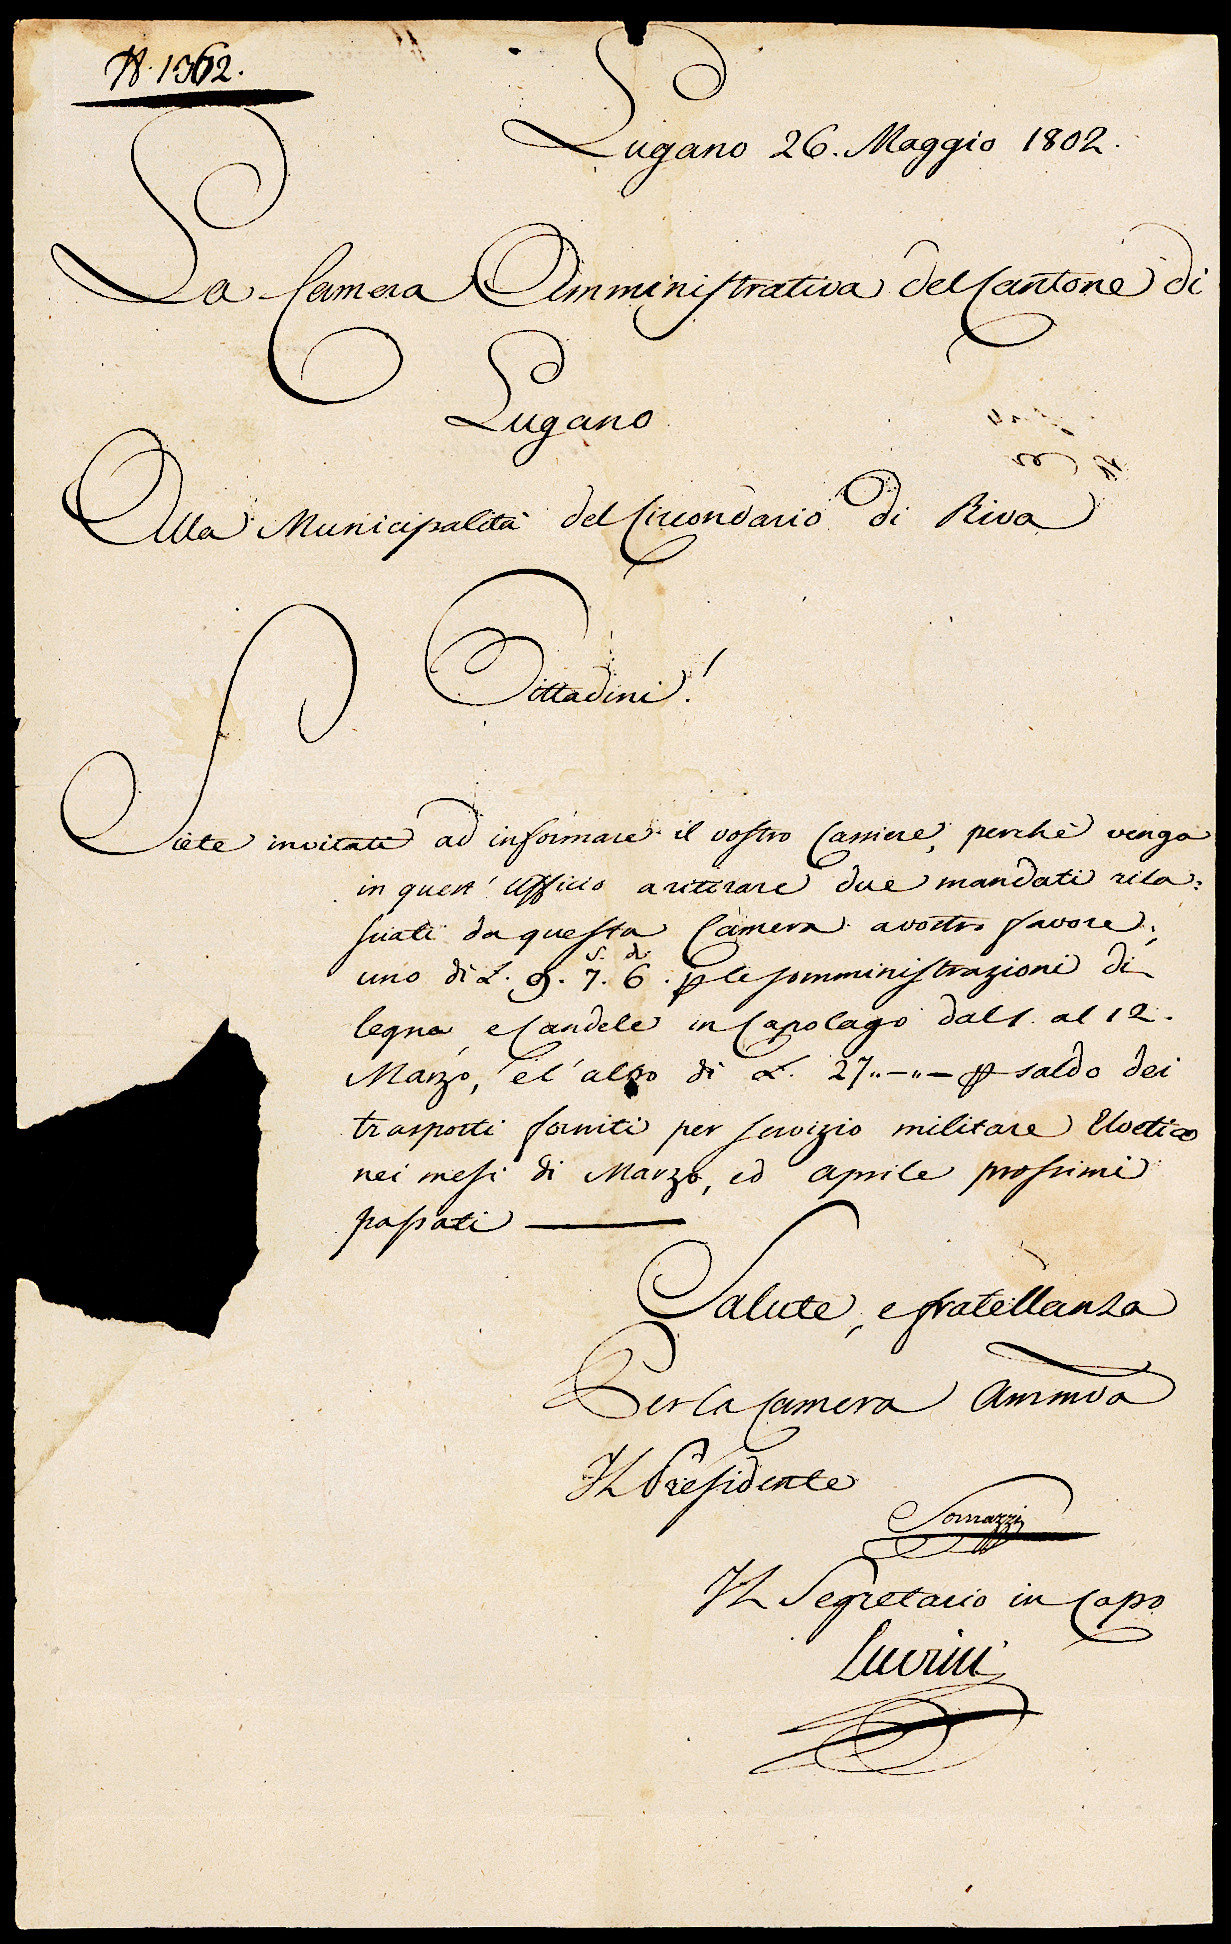 N. 1362.
Lugano 26. Maggio 1802.
La Camera Amministrativa del Cantone di
Lugano
Alla Municipalità del Circondario di Riva
Cittadini!
Siete invitati ad informare il vostro Cassiere, perchè venga
in quest' Ufficio a ritirare due mandati rila:
sciati da questa Camera a vostro favore;
uno di L. 9. 7. 6. p le somministrazioni di
s. d.
legna, e Candele in Capolago dal 1. al 12.
Marzo, e l' altro di L. 27 „ — „ — p saldo dei
trasporti forniti per servizio militare Elvetico
nei mesi di Marzo, ed aprile prossimi
passati
Salute, e fratellanza
Per la Camera Ammva
Il Presidente
Somazzi
Il Segretario in Capo
Luvini